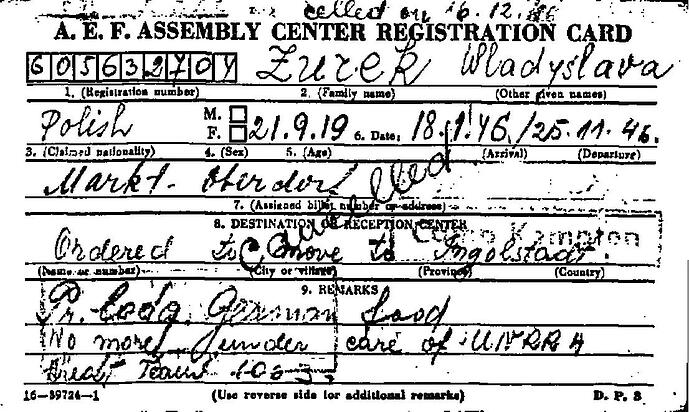 celled on 16.12.46
A. E. F. ASSEMBLY CENTER REGISTRATION CARD
60563270Y Zurek Wladyslava
1. (Registration number) 2. (Family name) (Other given names)
Polish M. F. 21.9.19 6. Date, 18.1.46/25.11.46.
3. (Claimed nationality) 4. (Sex) 5. (Age) (Arrival) (Departure)
Markt-Oberdorf
7. (Assigned billet number or address)
8. DESTINATION OR RECEPTION CENTER
Ordered to move to Ingolstadt.
Cancelled
Kempten
(Name or number) (City or village) (Province) (Country)
9. REMARKS
German food
No more under care of UNRRA
Team
16-39724-1 (Use reverse side for additional remarks) D. P. 3